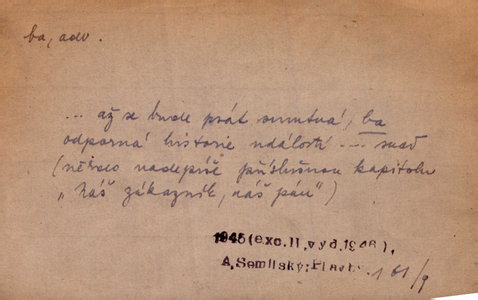 ba, adv.
... až se bude psát smutná, ba
odporná historie událostí --- snad
(někdo nadepíše příslušnou kapitolu
„Náš zákazník, náš pán")
1945 (exc. II, vyd. 1946),
A, Semilský: 161/9